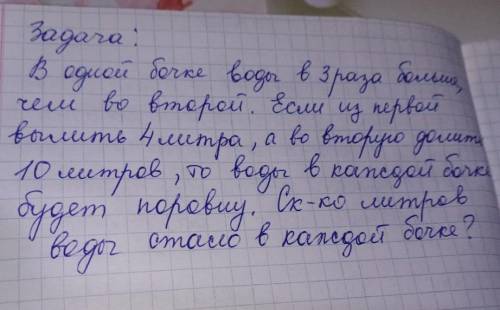 Задача:
В одной бочке воды в 3 раза больше,
чем во второй. Если из первой
вылить 4 литра, а во вторую долить
10 литров, то воды в каждой бочке
будет поровну. Ск-ко литров
воды стало в каждой бочке?